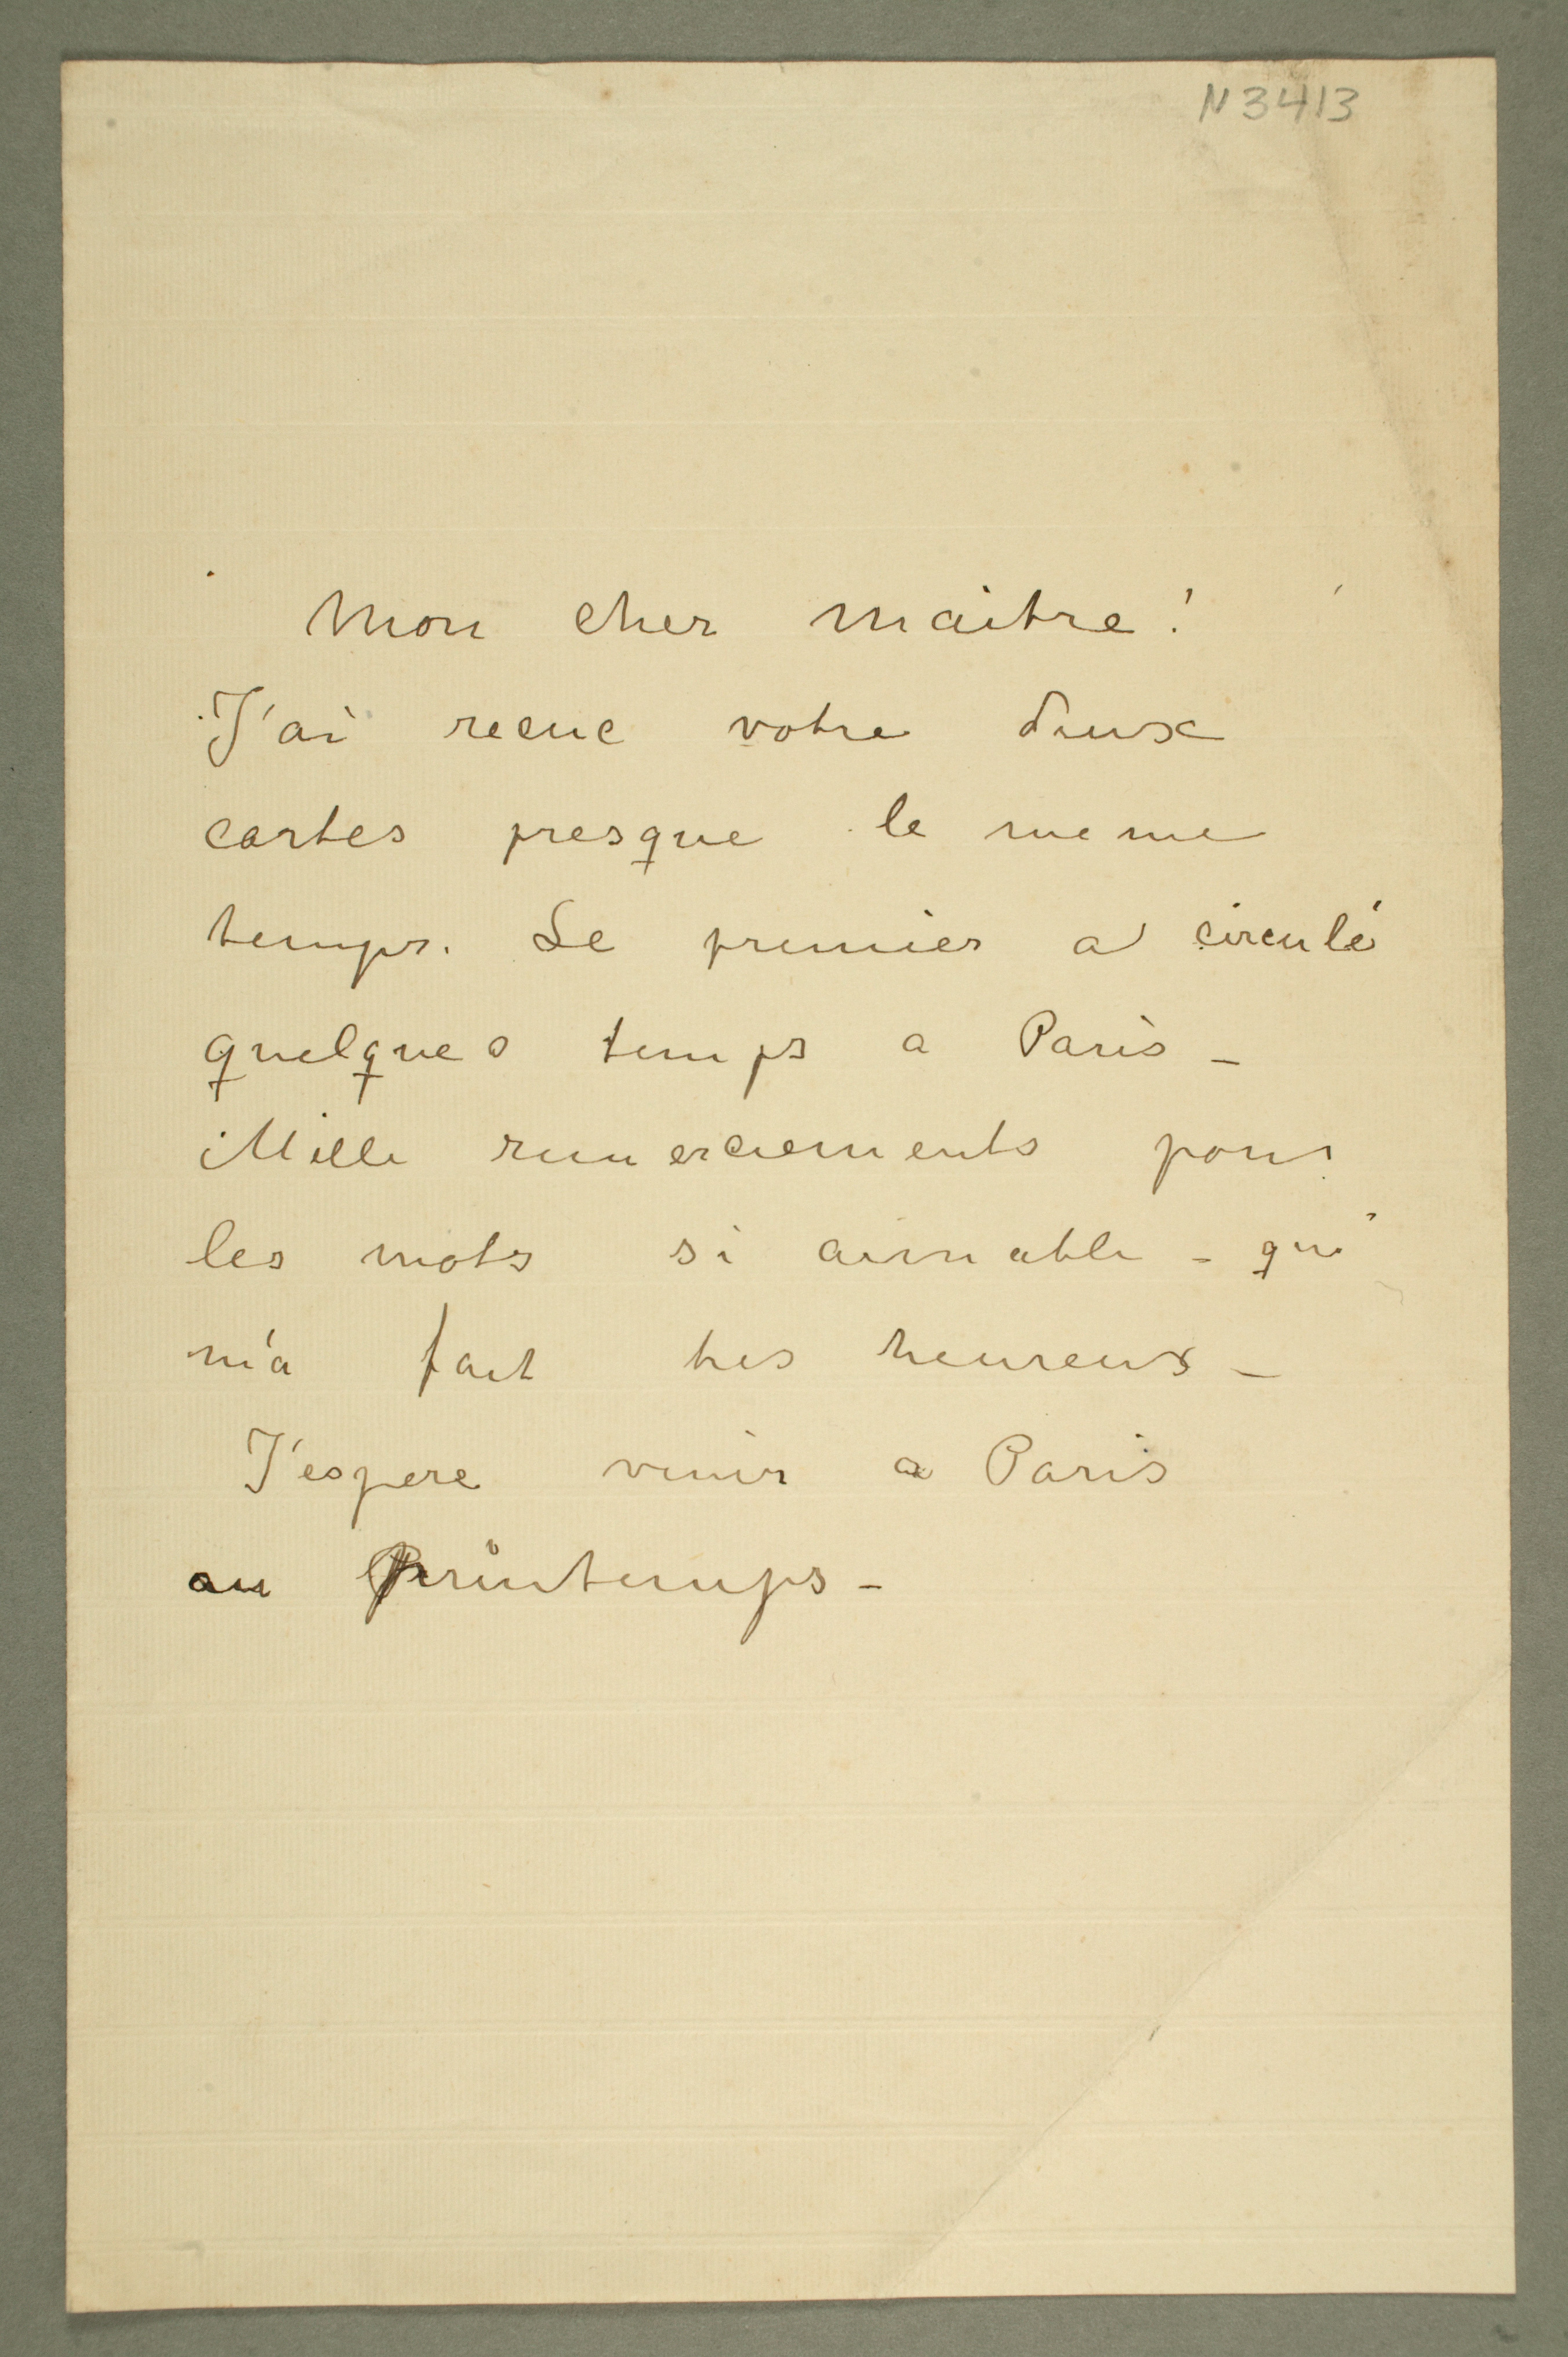 N 3413
Mon cher maitre!
J'ai recue votre deux
cartes presque le meme
temps. Le premier a circulé
quelques temps a Paris –
Mille remerciements pour
les mots si aimable – qui
m'a fait tres heureux –
J'espere venir a Paris
au Printemps –